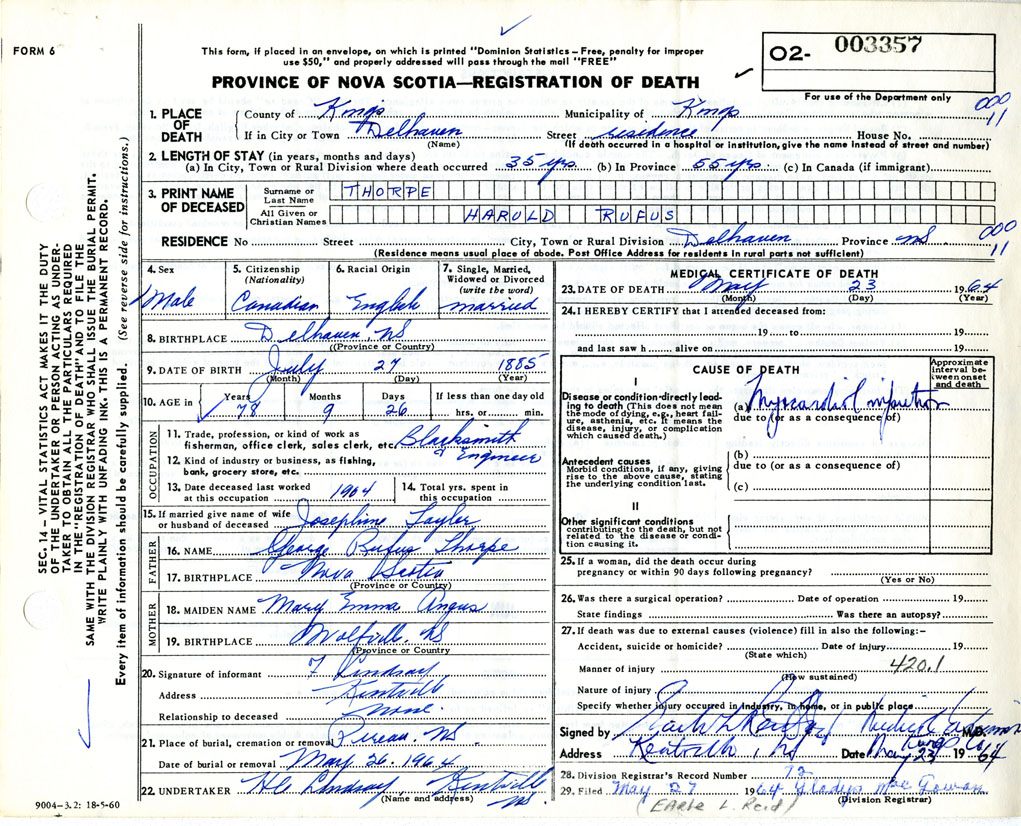 FORM 6
This form, if placed in an envelope, on which is printed "Dominion Statistics – Free, penalty for improper
use $50," and properly addressed will pass through the mail "FREE"
O2- 003357
PROVINCE OF NOVA SCOTIA—REGISTRATION OF DEATH
For use of the Department only
000
11
1. PLACE OF DEATH
County of Kings Municipality of Kings
If in City or Town Delhaven Street residence House No.
(Name) (If death occurred in a hospital or institution, give the name instead of street and number)
2. LENGTH OF STAY (in years, months and days)
(a) In City, Town or Rural Division where death occurred 35 yrs. (b) In Province 55 yrs. (c) In Canada (if immigrant)
3. PRINT NAME OF DECEASED
Surname or Last Name THORPE
All Given or Christian Names HAROLD RUFUS
RESIDENCE No. Street City, Town or Rural Division Delhaven Province NS
000
11
(Residence means usual place of abode. Post Office Address for residents in rural parts not sufficient)
4. Sex
Male
5. Citizenship
(Nationality)
Canadian
6. Racial Origin
English
7. Single, Married, Widowed or Divorced
(write the word)
married
8. BIRTHPLACE Delhaven, NS
(Province or Country)
9. DATE OF BIRTH July 27 1885
(Month) (Day) (Year)
10. AGE in
Years Months Days If less than one day old
78 9 26 hrs. or min.
OCCUPATION
11. Trade, profession, or kind of work as
fisherman, office clerk, sales clerk, etc. Blacksmith
& Engineer
12. Kind of industry or business, as fishing,
bank, grocery store, etc.
13. Date deceased last worked
at this occupation 1964
14. Total yrs. spent in
this occupation
15. If married give name of wife
or husband of deceased Josephine Tayler
FATHER
16. NAME George Rufus Thorpe
17. BIRTHPLACE Nova Scotia
(Province or Country)
MOTHER
18. MAIDEN NAME Mary Emma Angus
19. BIRTHPLACE Wolfville. NS
(Province or Country
20. Signature of informant F Lindsay
Address Kentville
Relationship to deceased none.
21. Place of burial, cremation or removal Pereau. NS
Date of burial or removal May 26. 1964
22. UNDERTAKER Lindsay Kentville
NS
(Name and address)
9004–3.2: 18-5-60
MEDICAL CERTIFICATE OF DEATH
23. DATE OF DEATH May 23 1964
(Month) (Day) (Year)
24. I HEREBY CERTIFY that I attended deceased from:
19 to 19
and last saw h alive on 19
CAUSE OF DEATH
Approximate interval between onset and death
I
Disease or condition directly leading to death (This does not mean the mode of dying, e.g., heart failure, asthenia, etc. It means the disease, injury, or complication which caused death.)
(a) Myocardial infarction
due to (or as a consequence of)
Antecedent causes
Morbid conditions, if any, giving rise to the above cause, stating the underlying condition last.
(b)
due to (or as a consequence of)
(c)
II
Other significant conditions
contributing to the death, but not related to the disease or condition causing it.
25. If a woman, did the death occur during
pregnancy or within 90 days following pregnancy?
(Yes or No)
26. Was there a surgical operation? Date of operation 19
State findings Was there an autopsy?
27. If death was due to external causes (violence) fill in also the following:–
Accident, suicide or homicide? Date of injury 19
(State which)
Manner of injury 420.1
(How sustained)
Nature of injury
Specify whether injury occurred in industry, in home, or in public place
Signed by Medical Examiner M.D.
Kings Co
Address Kentville, NS Date May 23 1964
28. Division Registrar's Record Number 12
29. Filed May 27 1964 Gladys MacGowan
(Division Registrar)
(Earle L. Reid)
SEC. 14 – VITAL STATISTICS ACT MAKES IT THE DUTY
OF THE UNDERTAKER OR PERSON ACTING AS UNDER-
TAKER TO OBTAIN ALL THE PARTICULARS REQUIRED
IN THE "REGISTRATION OF DEATH" AND TO FILE THE
SAME WITH THE DIVISION REGISTRAR WHO SHALL ISSUE THE BURIAL PERMIT.
WRITE PLAINLY WITH UNFADING INK. THIS IS A PERMANENT RECORD.
Every item of information should be carefully supplied. (See reverse side for instructions.)